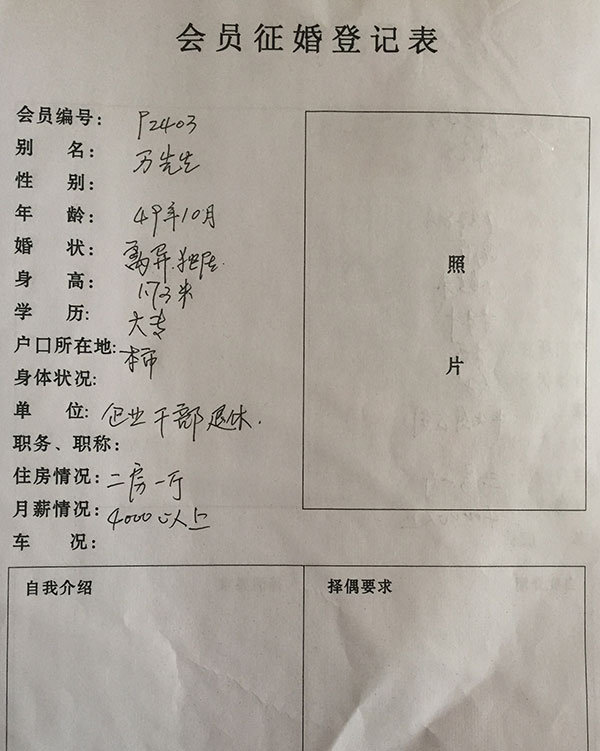 会员征婚登记表
会员编号： P2403
别 名： 万先生
性 别：
年 龄： 49年10月
婚 状： 离异.独居.
身 高： 1.73米
学 历： 大专
户口所在地: 本市
身体状况:
单 位: 企业干部退休.
职务、职称：
住房情况： 二房一厅
月薪情况： 4000以上
车 况：
照
片
自我介绍 择偶要求